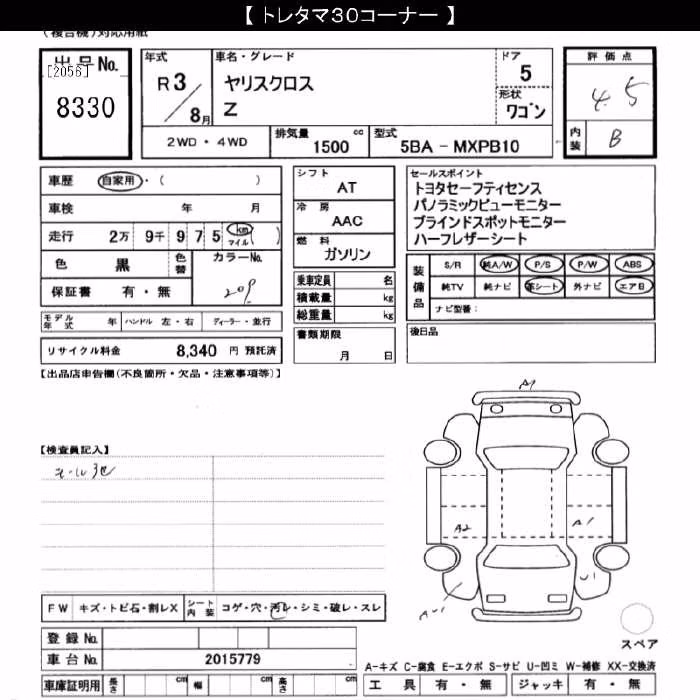 【 トレタマ30コーナー 】
(複合機)対応用紙
出品No.
[2056]
8330
年式
R 3 / 8月
車名・グレード
ヤリスクロス
Z
ドア
5
形状
ワゴン
評価点
4.5
内装
B
2WD・4WD
排気量 cc
1500
型式
5BA - MXPB10
車歴 自家用・( )
車検 年 月
走行 2万 9千 9 7 5 km マイル ( )
色 黒 色替 カラーNo.
209
保証書 有・無
シフト
AT
冷房
AAC
燃料
ガソリン
乗車定員 名
積載量 kg
総重量 kg
書類期限
月 日
セールスポイント
トヨタセーフティセンス
パノラミックビューモニター
ブラインドスポットモニター
ハーフレザーシート
装備品
S/R 純A/W P/S P/W ABS
純TV 純ナビ 革シート 外ナビ エアB
ナビ型番:
後日品
モデル年式 年 ハンドル 左・右 ディーラー・並行
リサイクル料金 8,340 円 預託済
【出品店申告欄(不良箇所・欠品・注意事項等)】
【検査員記入】
A1
A2
A1
U1
FW キズ・トビ石・割レX シート内装 コゲ・穴・汚レ・シミ・破レ・スレ
登録No.
車台No. 2015779
スペア
A-キズ C-腐食 E-エクボ S-サビ U-凹ミ W-補修 XX-交換済
車庫証明用 長さ cm 幅 cm 高さ cm
工具 有・無 ジャッキ 有・無